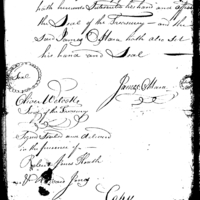 hundred hereunto his hand and affixed
the Seal of the Treasury and the
said James O Hara hath also set
his hand and Seal
Seal
James O Hara
Oliver Wolcott
Secy of the Treasury
Signed Sealed and delivered
in the presence of
Jones
Copy